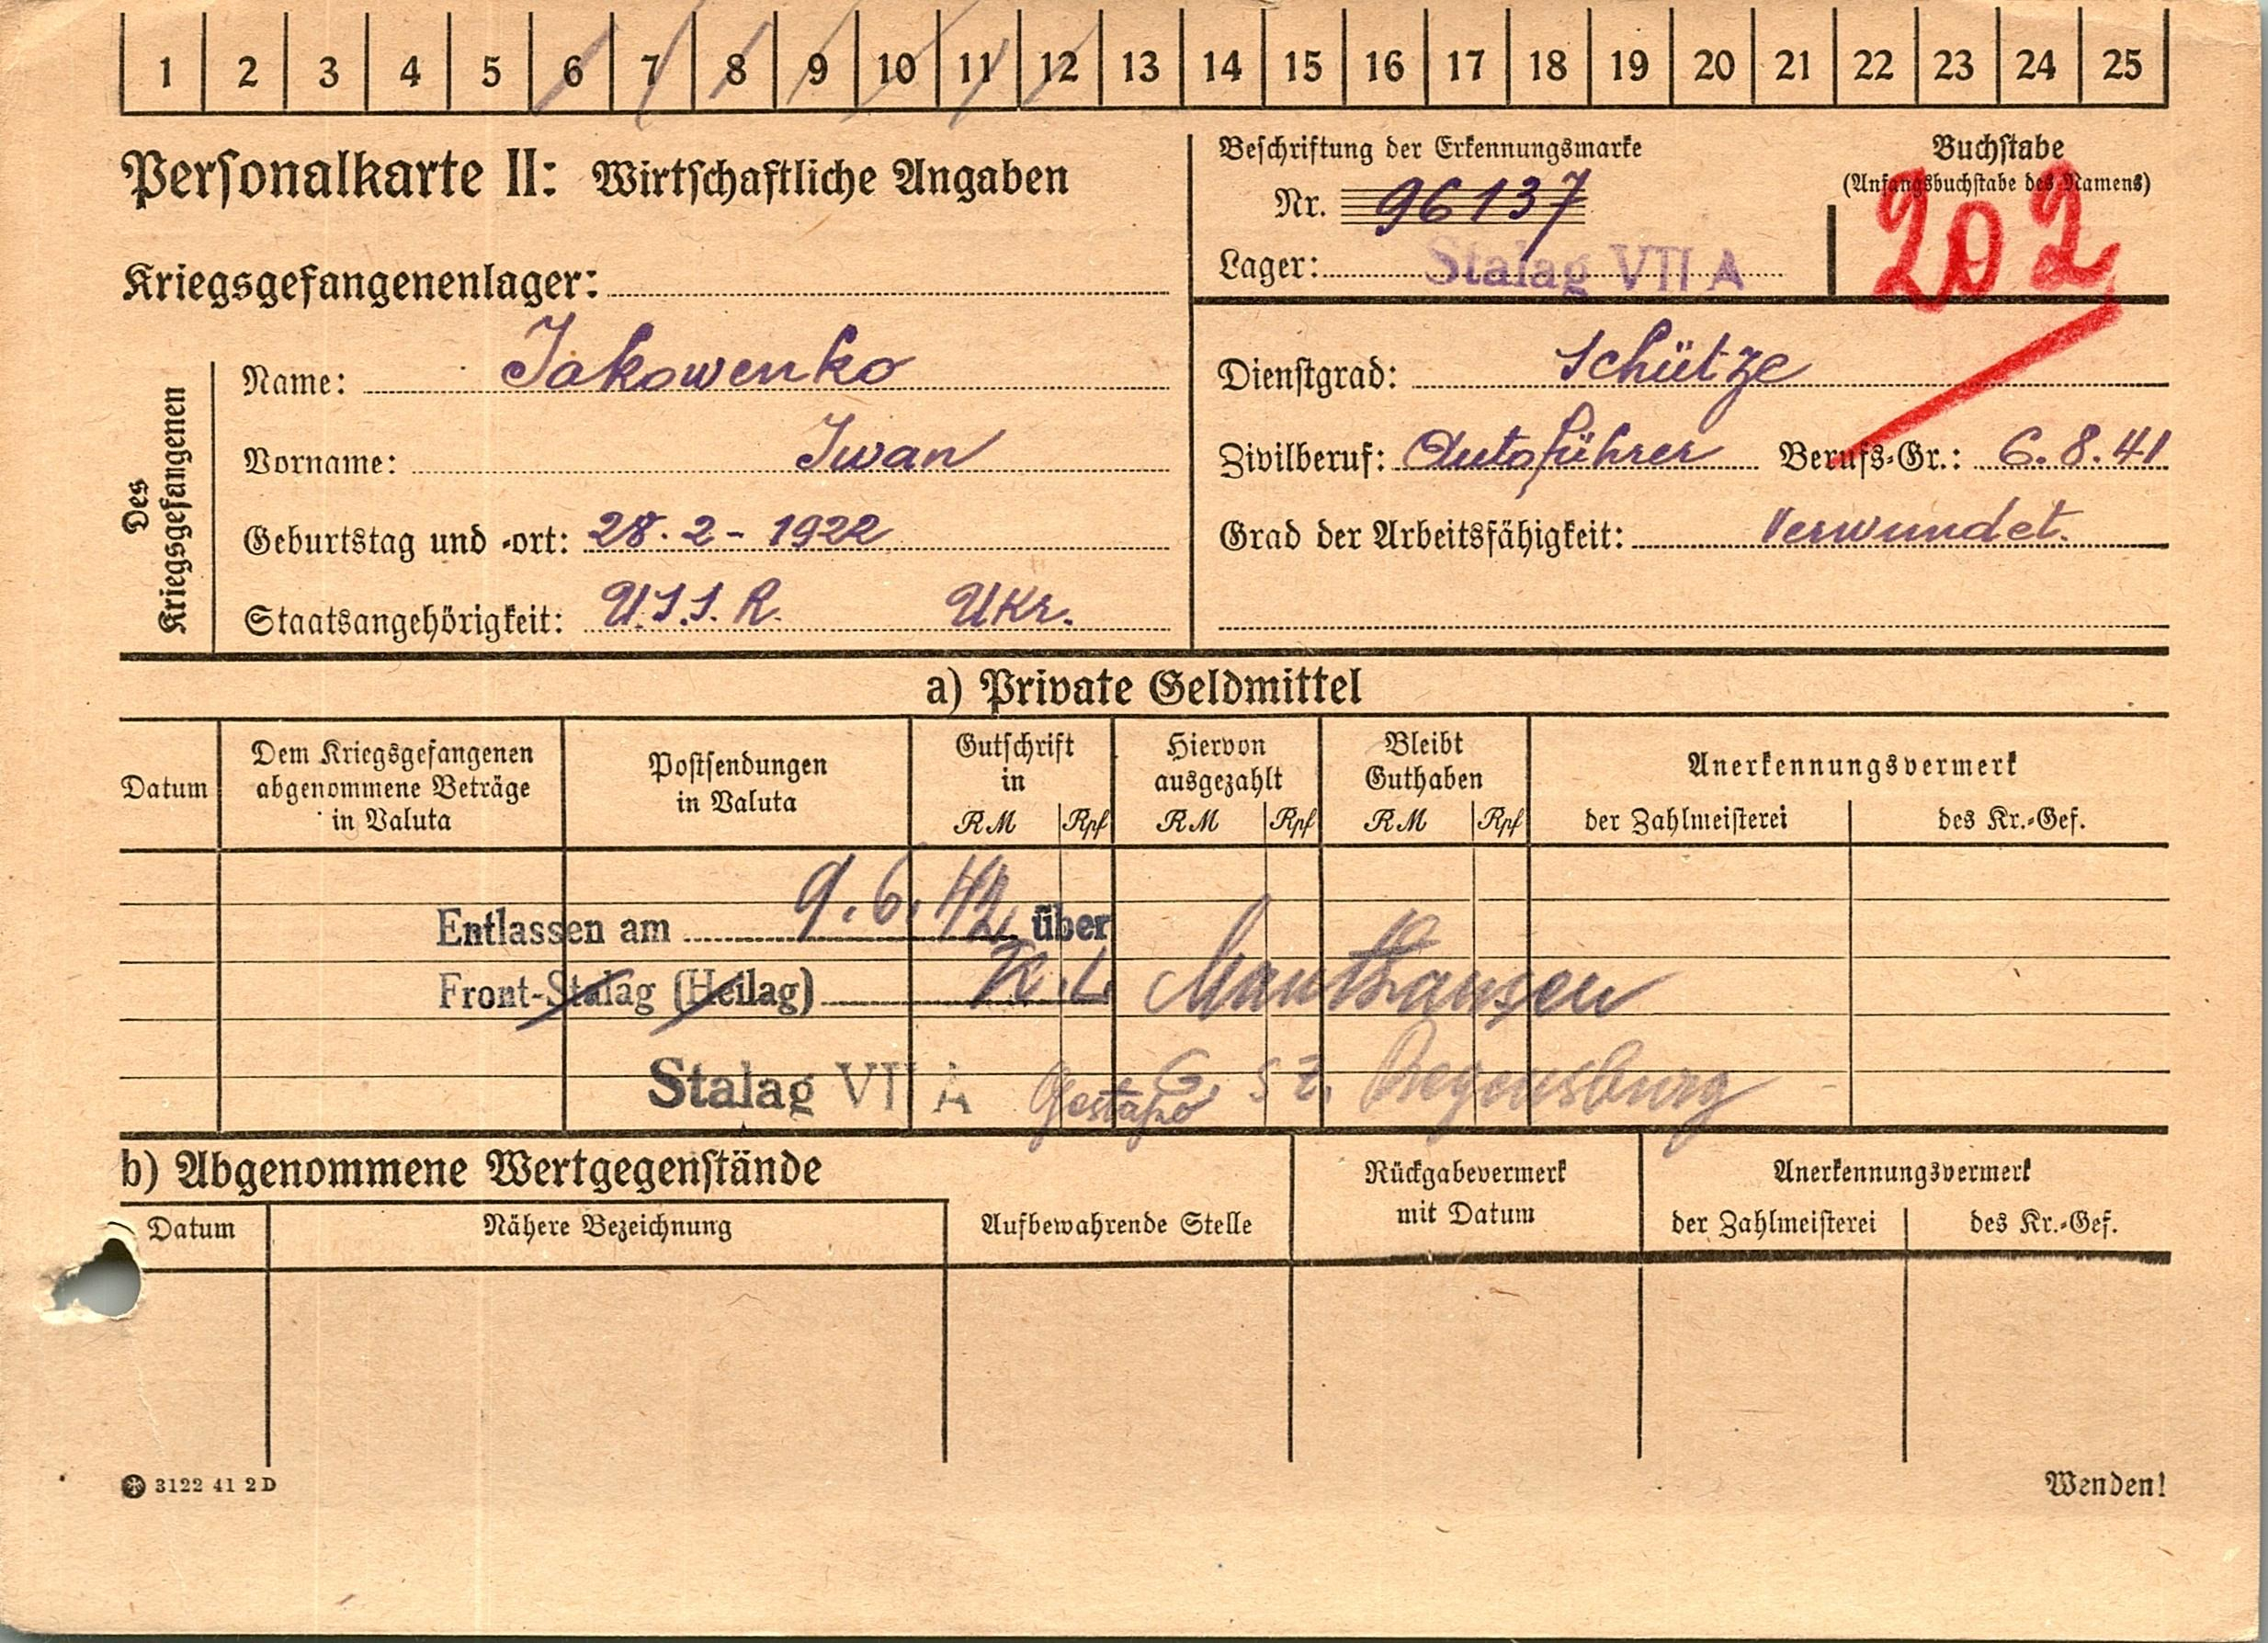 1 2 3 4 5 6 7 8 9 10 11 12 13 14 15 16 17 18 19 20 21 22 23 24 25
Personalkarte II: Wirtschaftliche Angaben
Kriegsgefangenenlager:
Beschriftung der Erkennungsmarke
Nr. 96137
Lager: Stalag VII A
Buchstabe
(Anfangsbuchstabe des Namens)
202
Des
Kriegsgefangenen
Name: Jakowenko
Vorname: Iwan
Geburtstag und -ort: 28. 2 - 1922
Staatsangehörigkeit: U.S.S.R. Ukr.
Dienstgrad: Schütze
Zivilberuf: Autoführer Berufs-Gr.: 6.8.41
Grad der Arbeitsfähigkeit: Verwundet.
a) Private Geldmittel
Datum
Dem Kriegsgefangenen
abgenommene Beträge
in Valuta
Postsendungen
in Valuta
Gutschrift
in
RM Rpf
Hiervon
ausgezahlt
RM Rpf
Bleibt
Guthaben
RM Rpf
Anerkennungsvermerk
der Zahlmeisterei des Kr.-Gef.
Entlassen am 9.6.42 über
Front-Stalag (Heilag) K.L Mauthausen
Stalag VII A Gestapo Regensburg
b) Abgenommene Wertgegenstände
Datum Nähere Bezeichnung Aufbewahrende Stelle
Rückgabevermerk
mit Datum
Anerkennungsvermerk
der Zahlmeisterei des Kr.-Gef.
3122 41 2D
Wenden!